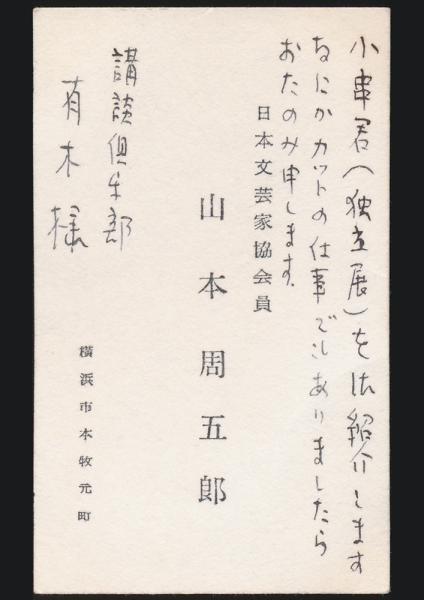 小串君(独立展)を御紹介します
なにかカットの仕事でもありましたら
おたのみ申します。
日本文芸家協会員
山本周五郎
講談倶楽部
有木様
横浜市本牧元町